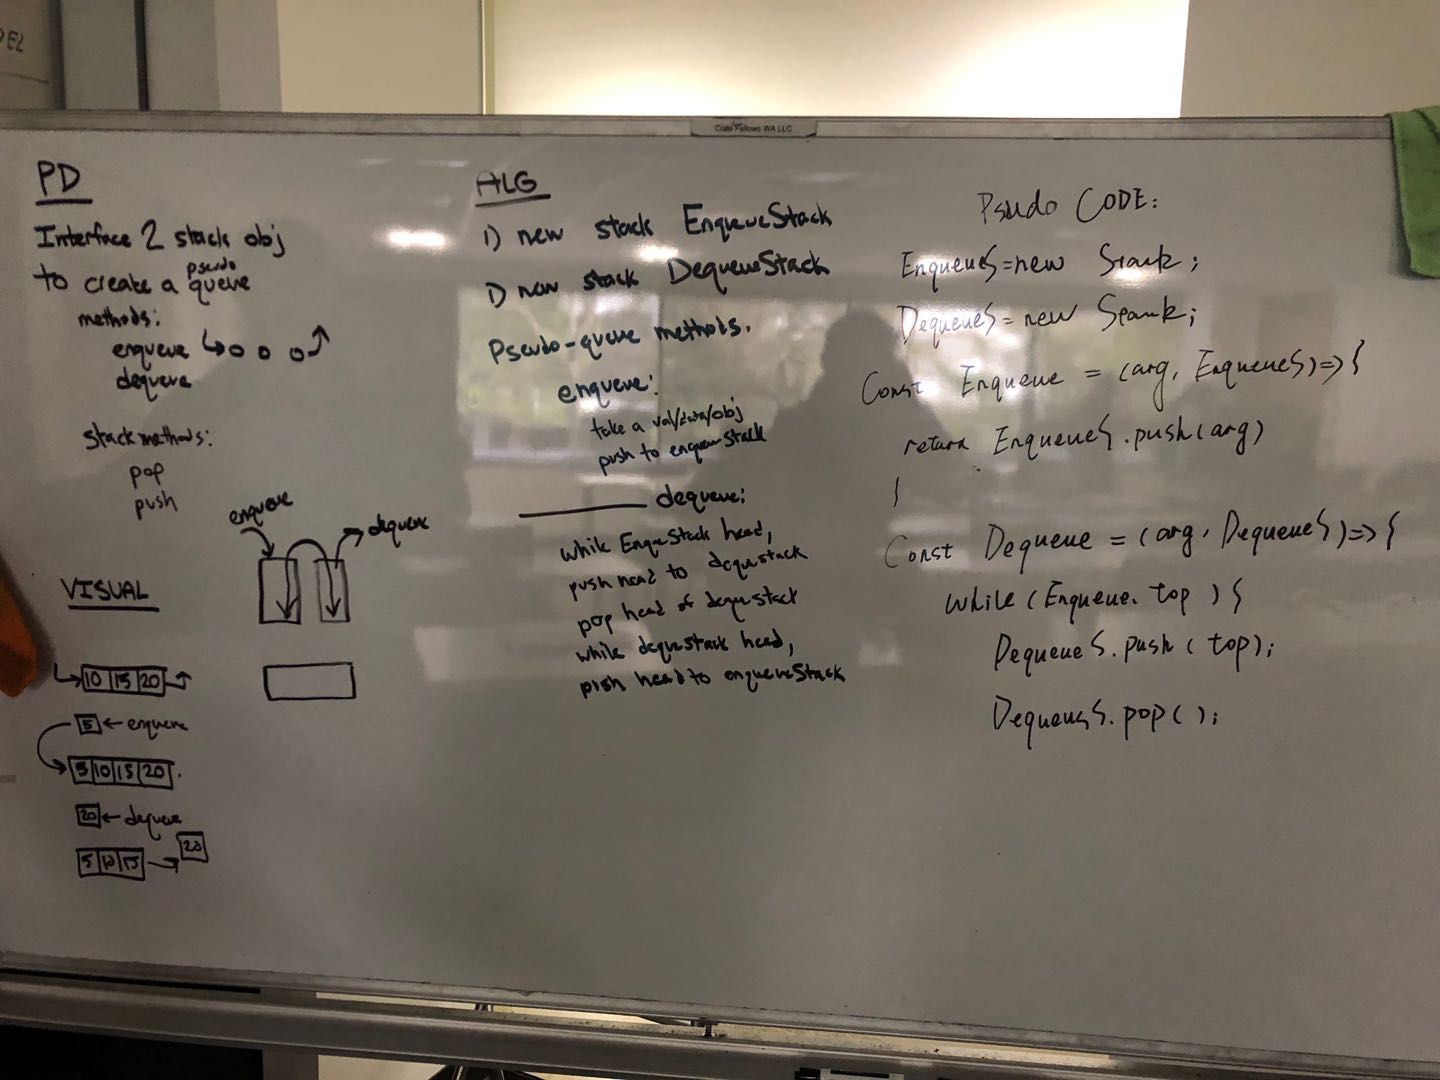 DEL
Code Fellows WA LLC
PD
Interface 2 stack obj
to create a pseudo queue
methods:
enqueue
dequeue
stack methods:
pop
push
enqueue
dequeue
VISUAL
10 15 20
5 ← enqueue
5 10 15 20
20 ← dequeue
5 10 15 → 20
ALG
1) new stack EnqueueStack
1) new stack DequeueStack
Pseudo-queue methods.
enqueue:
take a val/data/obj
push to enqueueStack
dequeue:
while EnqueStack head,
push head to dequstack
pop head of dequstack
while dequestack head,
push head to enqueueStack
Psudo CODE:
EnqueueS = new Stack;
DequeueS = new Stack;
Const Enqueue = (arg, EnqueueS) => {
return EnqueueS.push(arg)
}
Const Dequeue = (arg, DequeueS) => {
while (Enqueue.top) {
DequeueS.push(top);
DequeueS.pop();